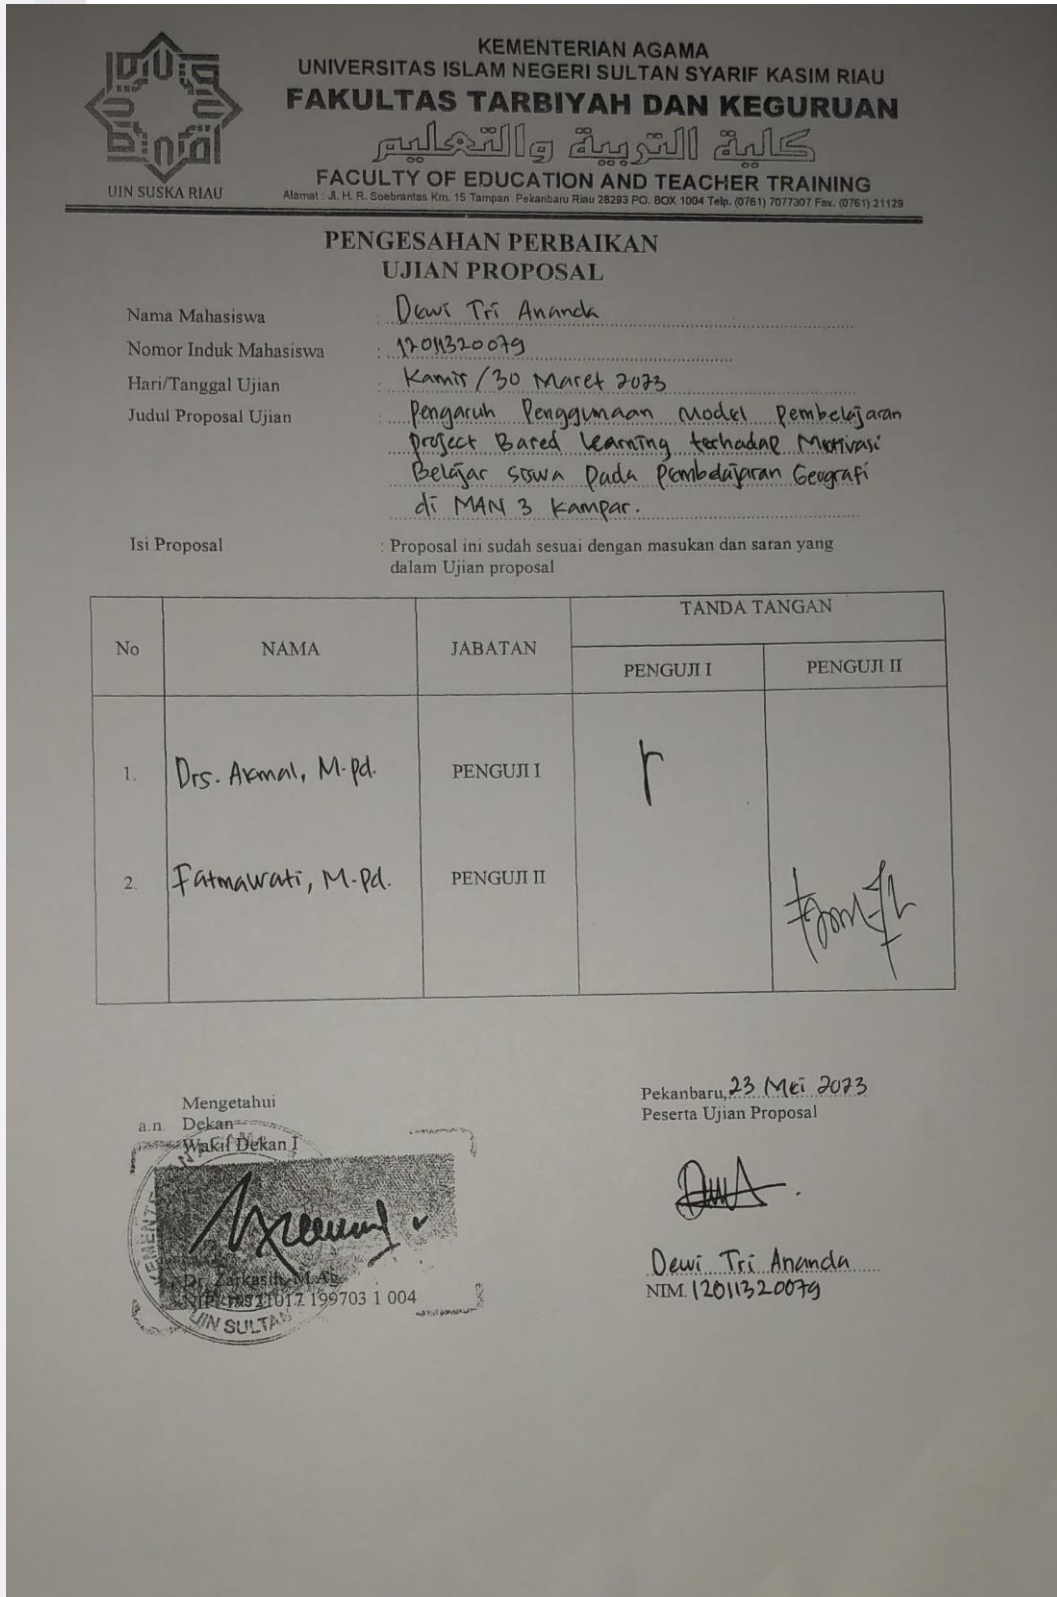 KEMENTERIAN AGAMA
UNIVERSITAS ISLAM NEGERI SULTAN SYARIF KASIM RIAU
FAKULTAS TARBIYAH DAN KEGURUAN
كلية التربية والتعليم
FACULTY OF EDUCATION AND TEACHER TRAINING
Alamat : Jl. H. R. Soebrantas Km. 15 Tampan Pekanbaru Riau 28293 PO. BOX 1004 Telp. (0761) 7077307 Fax. (0761) 21129
UIN SUSKA RIAU
PENGESAHAN PERBAIKAN
UJIAN PROPOSAL
Nama Mahasiswa : Dewi Tri Ananda
Nomor Induk Mahasiswa : 12011320079
Hari/Tanggal Ujian : Kamis / 30 Maret 2023
Judul Proposal Ujian : Pengaruh Penggunaan Model Pembelajaran
Project Based Learning terhadap Motivasi
Belajar Siswa Pada Pembelajaran Geografi
di MAN 3 Kampar.
Isi Proposal : Proposal ini sudah sesuai dengan masukan dan saran yang
dalam Ujian proposal
No NAMA JABATAN TANDA TANGAN
PENGUJI I PENGUJI II
1. Drs. Akmal, M.Pd. PENGUJI I
2. Fatmawati, M.Pd. PENGUJI II
Mengetahui
a.n. Dekan
Wakil Dekan I
Dr. Zarkasih, M.Ag.
NIP. 19721017 199703 1 004
UIN SULTAN
Pekanbaru, 23 Mei 2023
Peserta Ujian Proposal
Dewi Tri Ananda
NIM. 12011320079